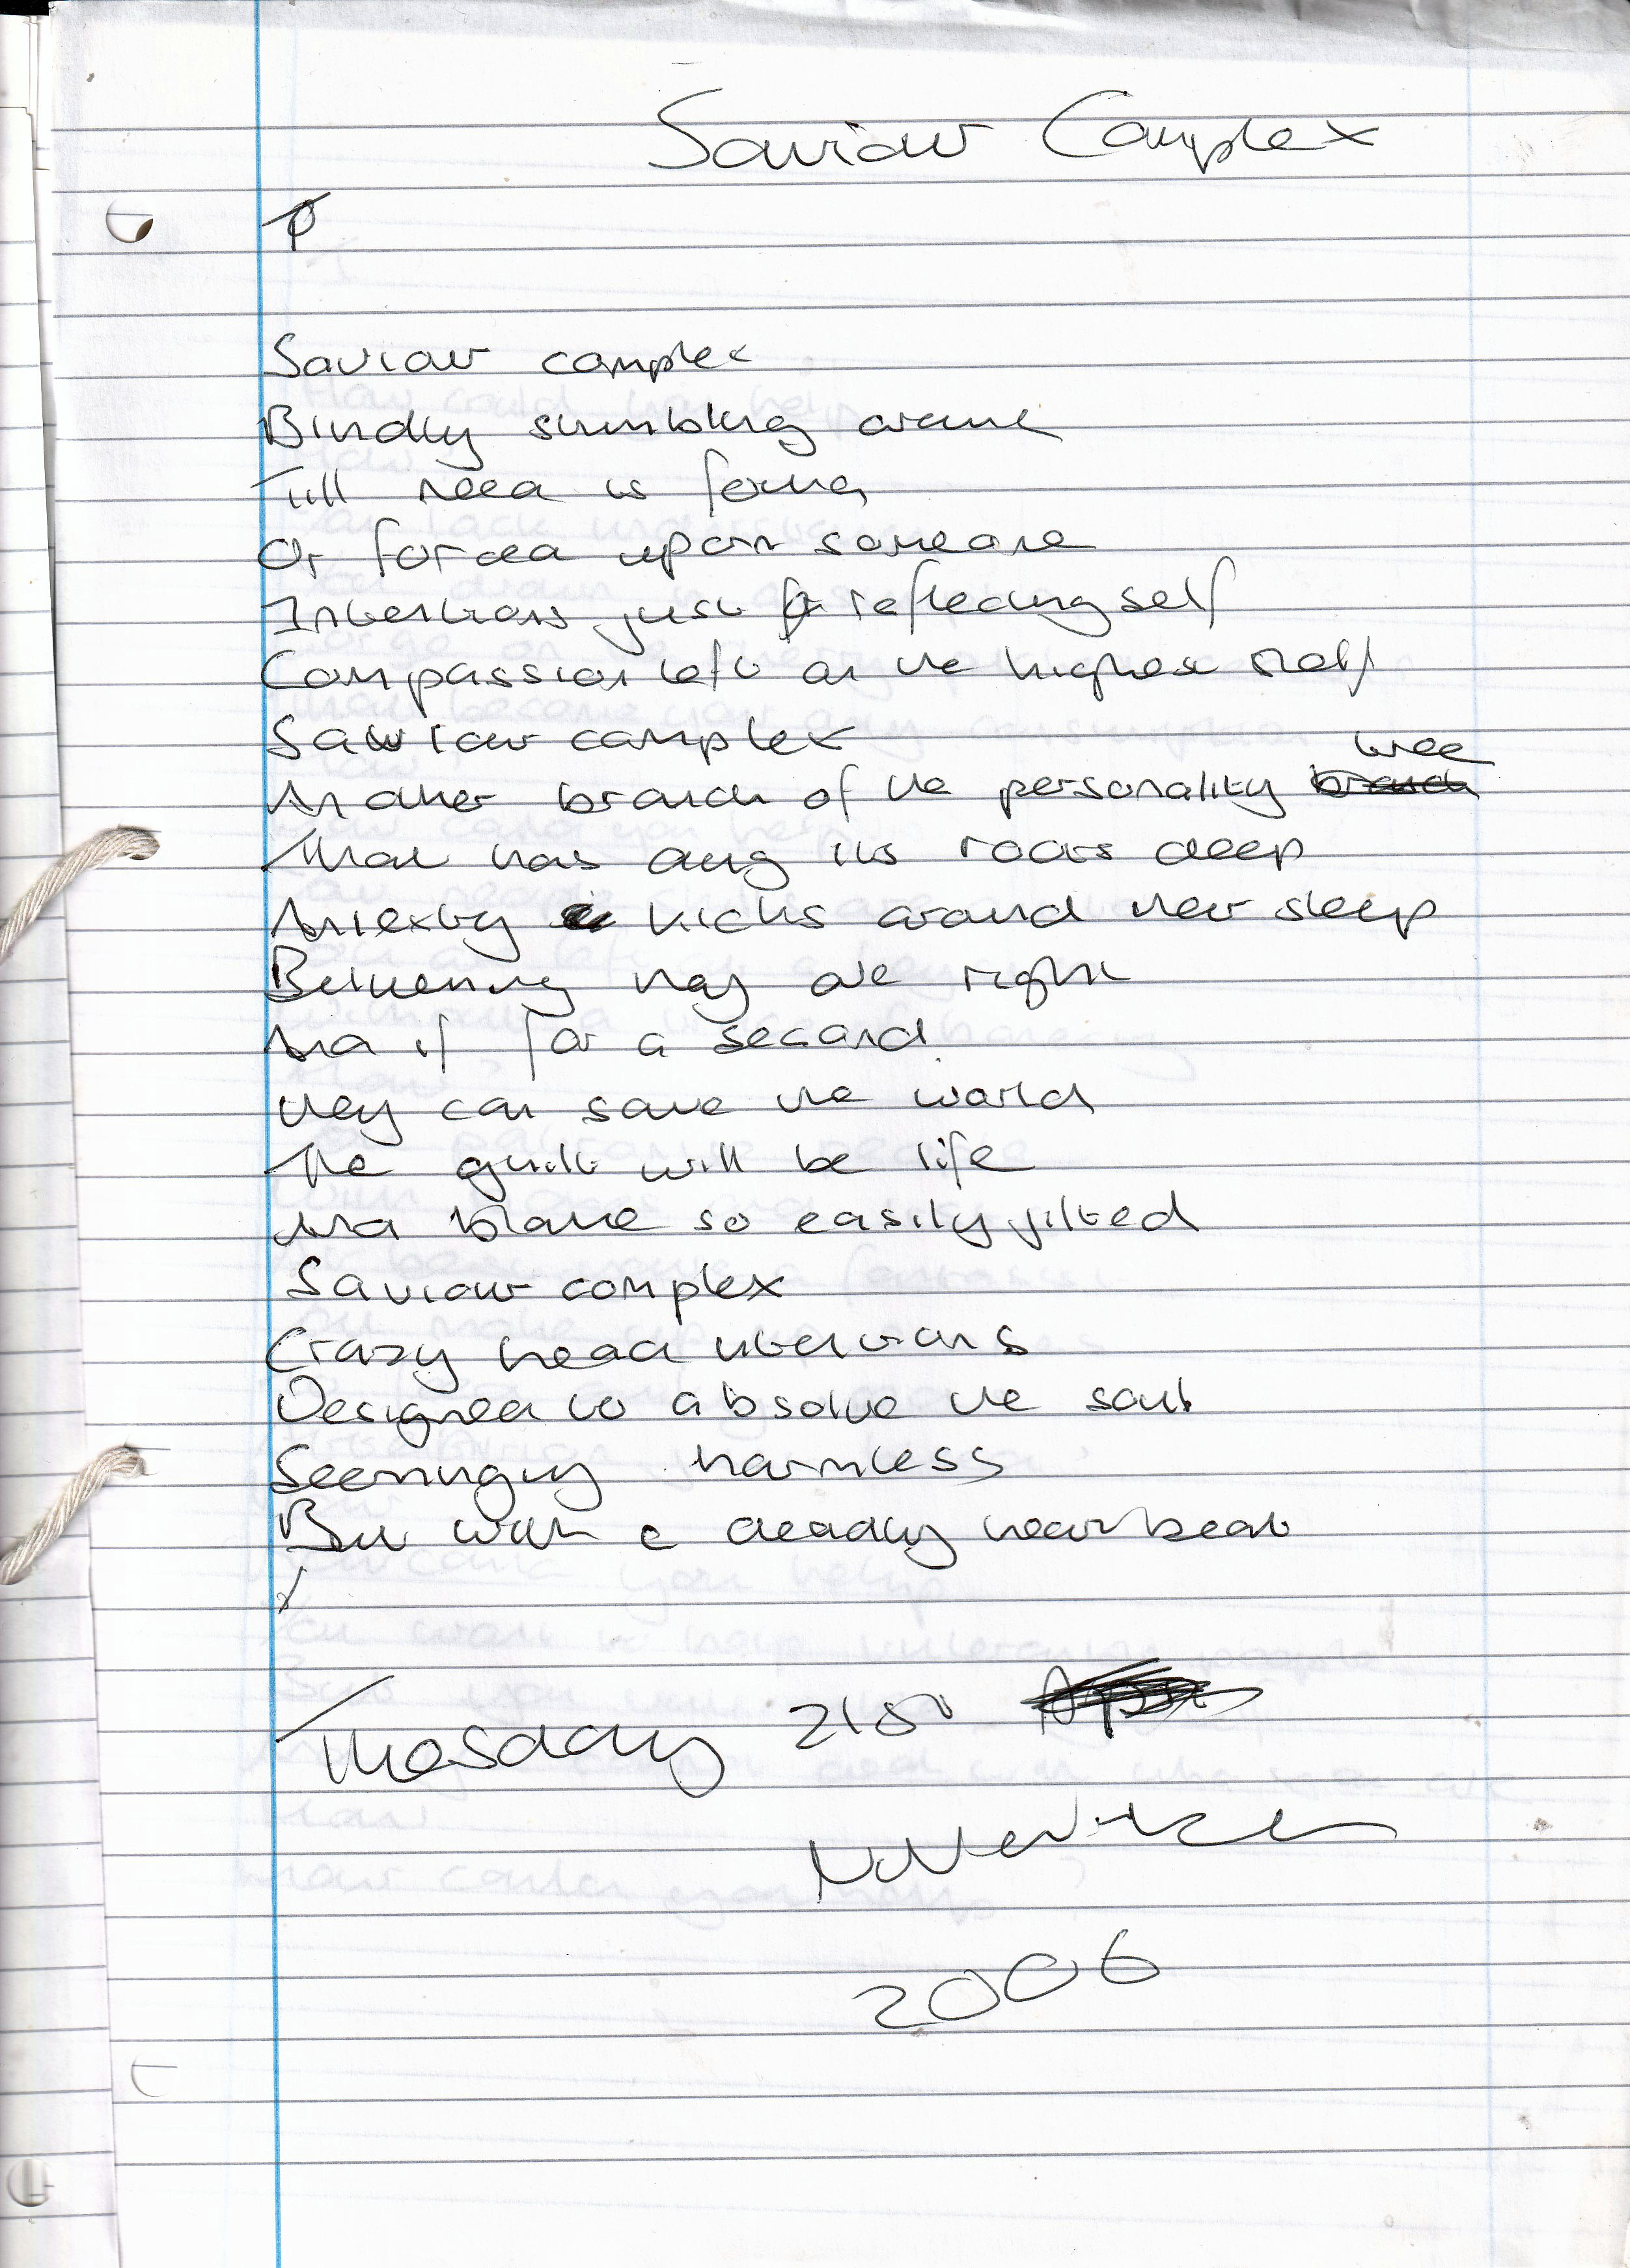 Saviour Complex
Saviour complex
Blindly stumbling around
Till need is found
Or forced upon someone
Intentions just reflecting self
Compassion left on the highest shelf
Saviour complex
Another branch of the personality tree
That has dug its roots deep
Anxiety kicks around their sleep
Believing they are right
And if for a second
they can save the world
The guilt will be life
And blame so easily jilted
Saviour complex
Crazy head intentions
Designed to absolve the soul
Seemingly harmless
But with a deadly heartbeat
Tuesday 21st
November
2006